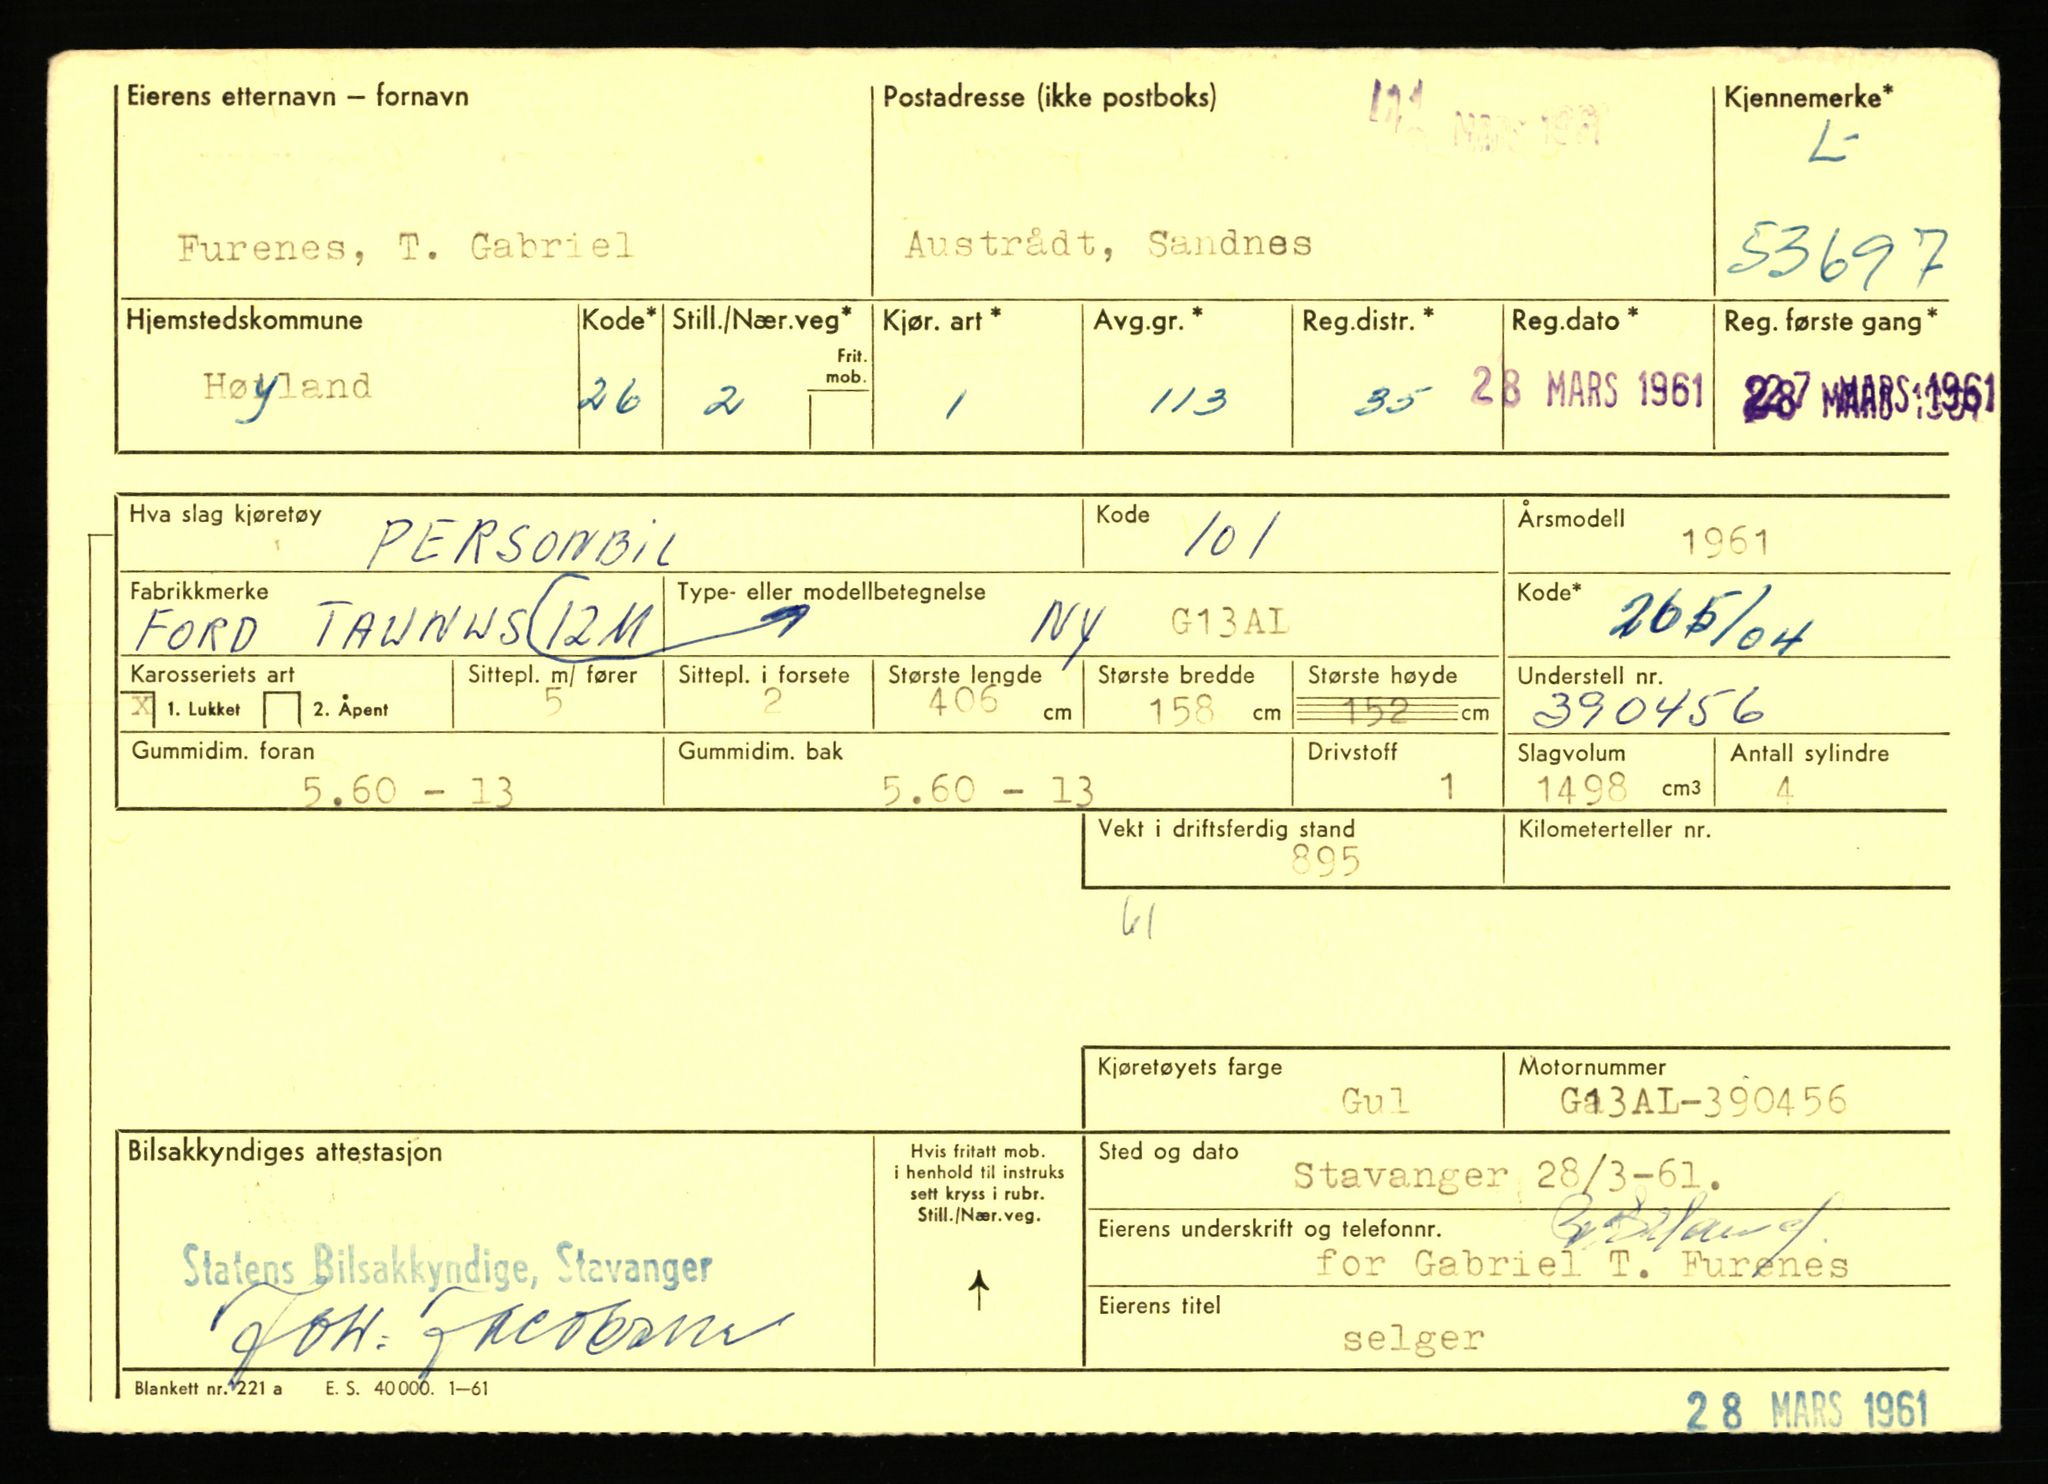 Eierens etternavn – fornavn
Postadresse (ikke postboks)
MARS 1961
Kjennemerke*
L-
Furenes, T. Gabriel
Austrådt, Sandnes
53697
Hjemstedskommune
Kode*
Still./Nær.veg*
Frit. mob.
Kjør. art *
Avg.gr. *
Reg.distr. *
Reg.dato *
Reg. første gang*
Høyland
26
2
1
113
35
28 MARS 1961
27 MARS 1961
Hva slag kjøretøy
PERSONBIL
Kode
101
Årsmodell
1961
Fabrikkmerke
FORD TAUNUS 12M
Type- eller modellbetegnelse
NY G13AL
Kode*
265/04
Karosseriets art
X 1. Lukket 2. Åpent
Sittepl. m/ fører
5
Sittepl. i forsete
2
Største lengde
406 cm
Største bredde
158 cm
Største høyde
152 cm
Understell nr.
390456
Gummidim. foran
5.60 - 13
Gummidim. bak
5.60 - 13
Drivstoff
1
Slagvolum
1498 cm3
Antall sylindre
4
Vekt i driftsferdig stand
895
Kilometerteller nr.
61
Kjøretøyets farge
Gul
Motornummer
G13AL-390456
Bilsakkyndiges attestasjon
Statens Bilsakkyndige, Stavanger
Joh. Jacobsen
Hvis fritatt mob.
i henhold til instruks
sett kryss i rubr.
Still./Nær.veg.
Sted og dato
Stavanger 28/3-61.
Eierens underskrift og telefonnr.
for Gabriel T. Furenes
Eierens titel
selger
Blankett nr. 221 a E. S. 40 000. 1—61
28 MARS 1961